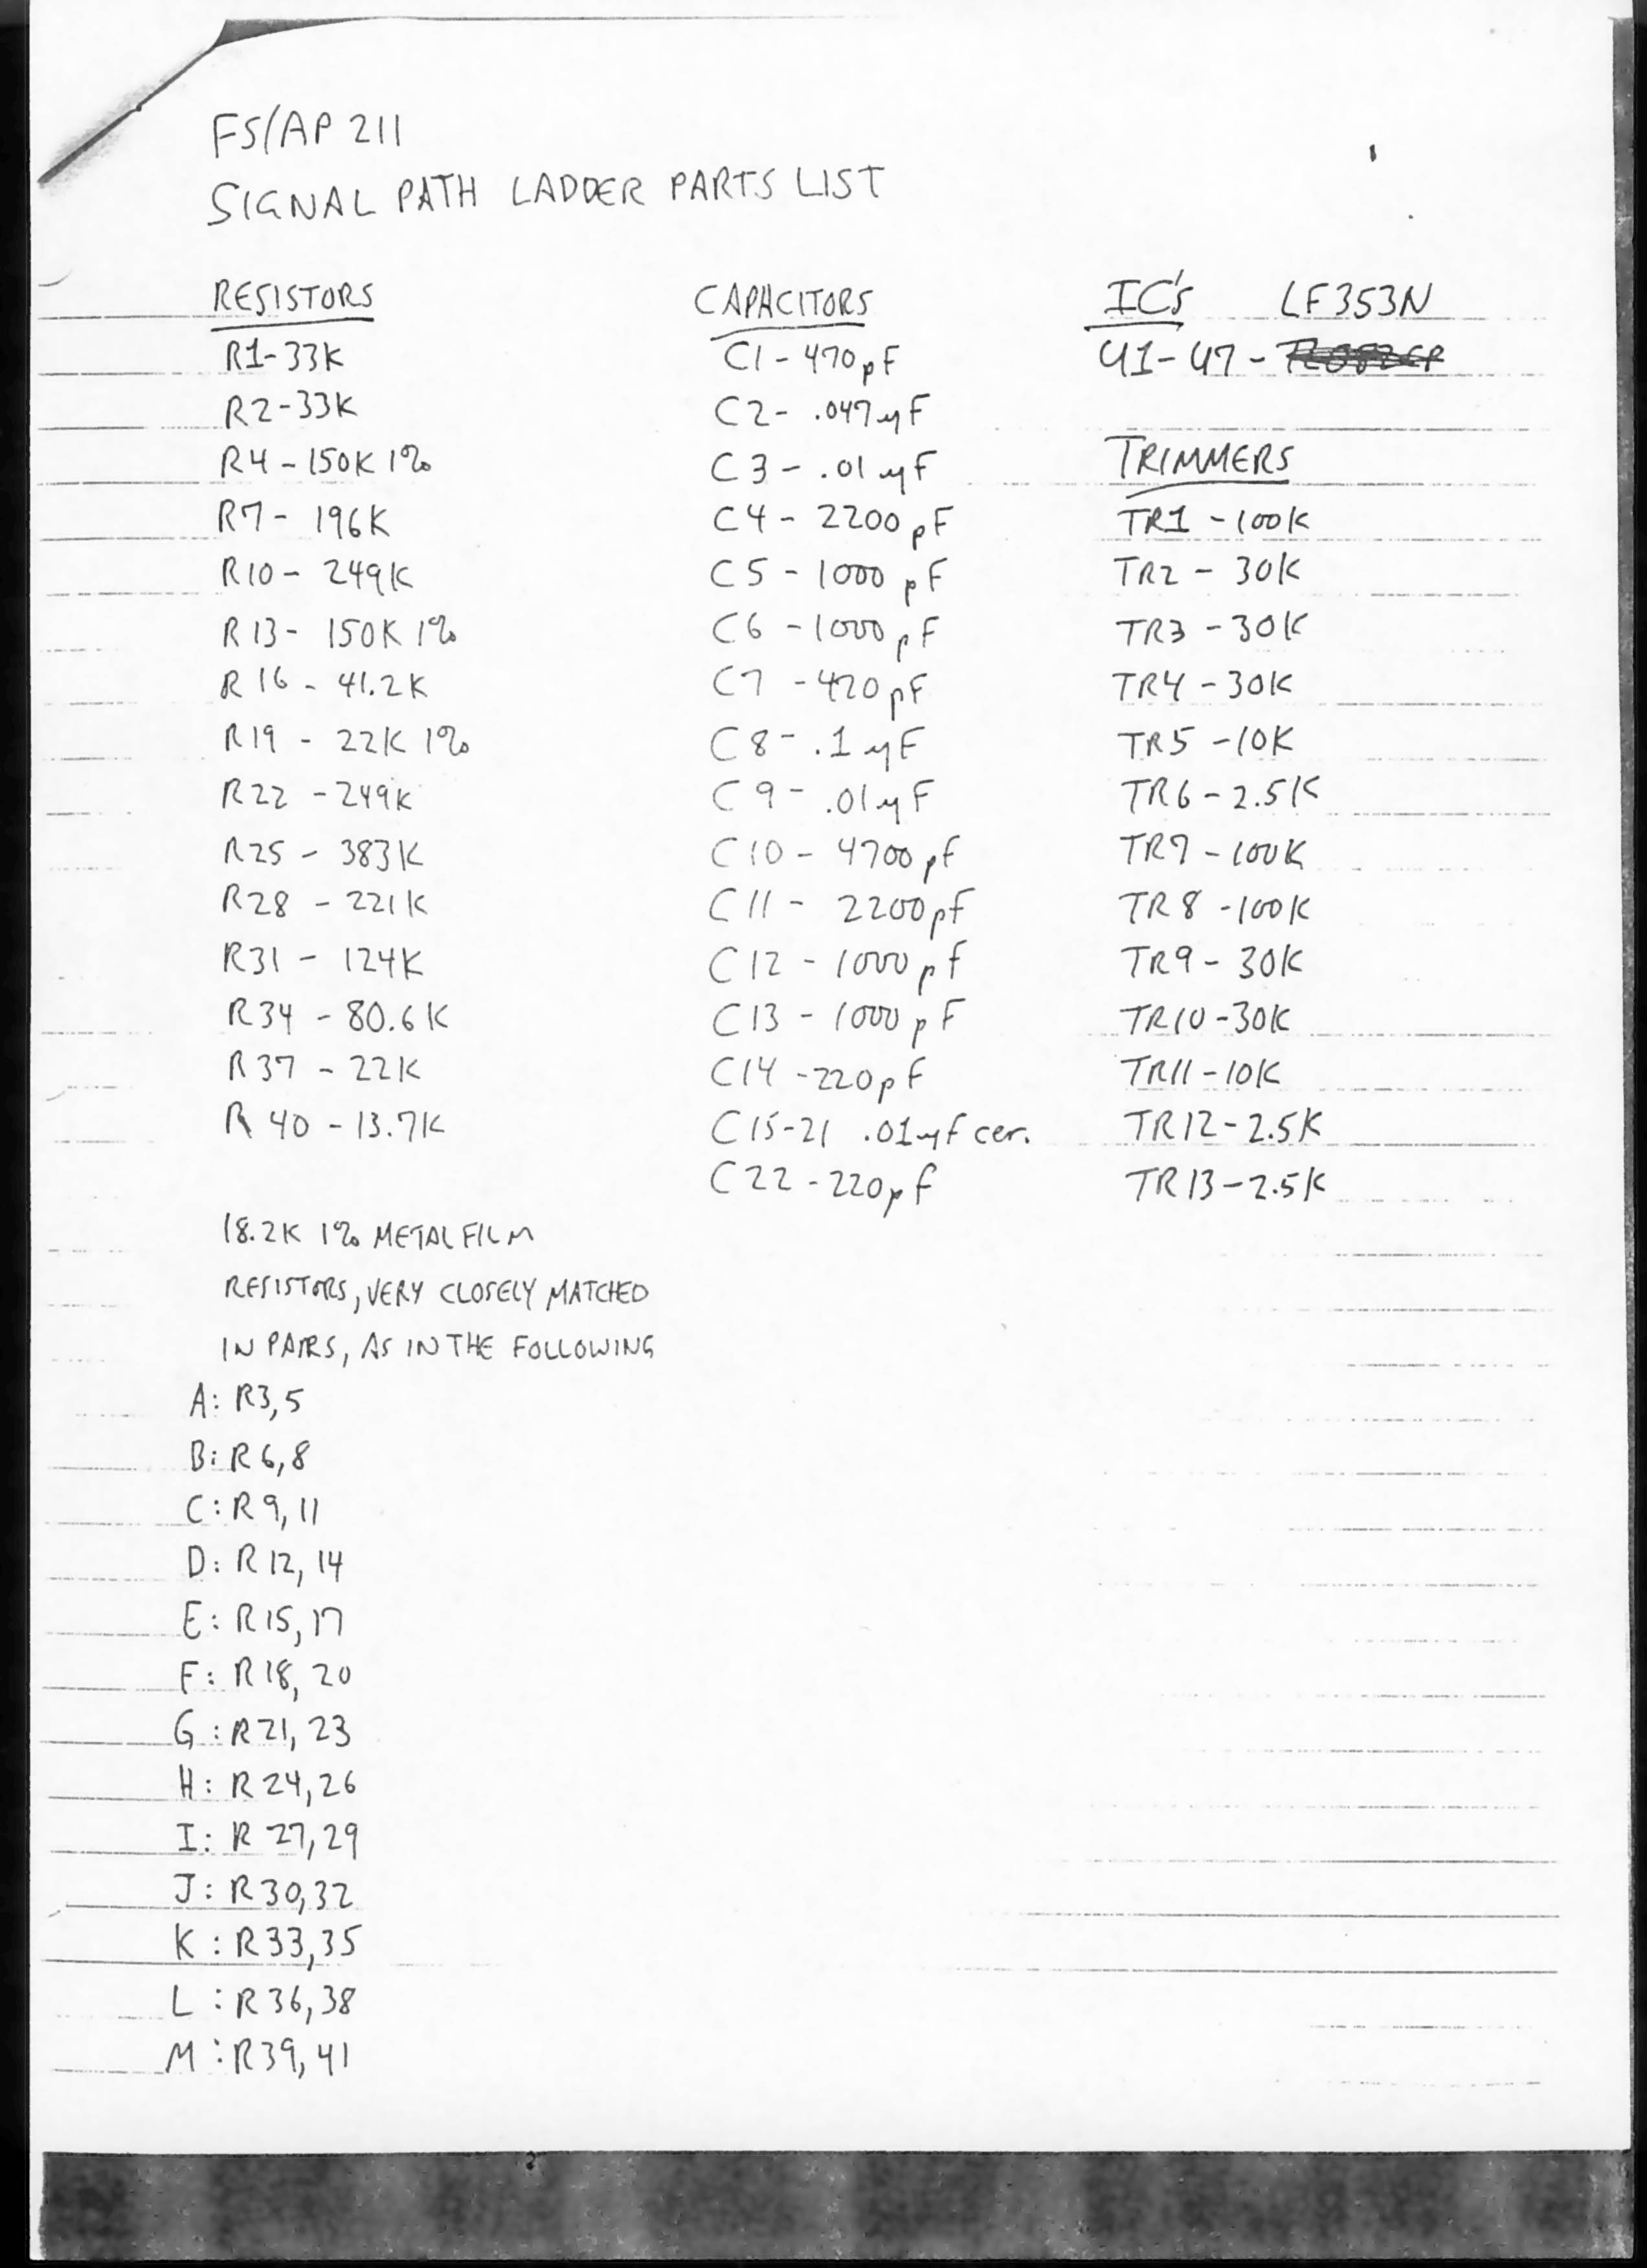 FS/AP 211
SIGNAL PATH LADDER PARTS LIST
RESISTORS
R1-33K
R2-33K
R4-150K 1%
R7- 196K
R10- 249K
R13- 150K 1%
R16- 41.2K
R19 - 22K 1%
R22 -249K
R25 - 383K
R28 - 221K
R31 - 124K
R34 - 80.6K
R37 - 22K
R40 -13.7K
18.2K 1% METAL FILM
RESISTORS, VERY CLOSELY MATCHED
IN PAIRS, AS IN THE FOLLOWING
A: R3,5
B: R6,8
C: R9,11
D: R12,14
E: R15,17
F: R18, 20
G: R21, 23
H: R24,26
I: R27,29
J: R30,32
K: R33,35
L: R36,38
M: R39,41
CAPACITORS
C1 - 470pF
C2- .047µF
C3 - .01µF
C4 - 2200pF
C5 - 1000pF
C6 -1000pF
C7 -470pF
C8- .1µF
C9- .01µF
C10 - 4700pF
C11 - 2200pF
C12 - 1000pF
C13 - 1000pF
C14 -220pF
C15-21 .01µF cer.
C22 -220pF
IC's LF353N
U1-U7-
TRIMMERS
TR1 -100K
TR2 - 30K
TR3 -30K
TR4 -30K
TR5 -10K
TR6 -2.5K
TR7 -100K
TR8 -100K
TR9 - 30K
TR10 -30K
TR11 -10K
TR12-2.5K
TR13-2.5K